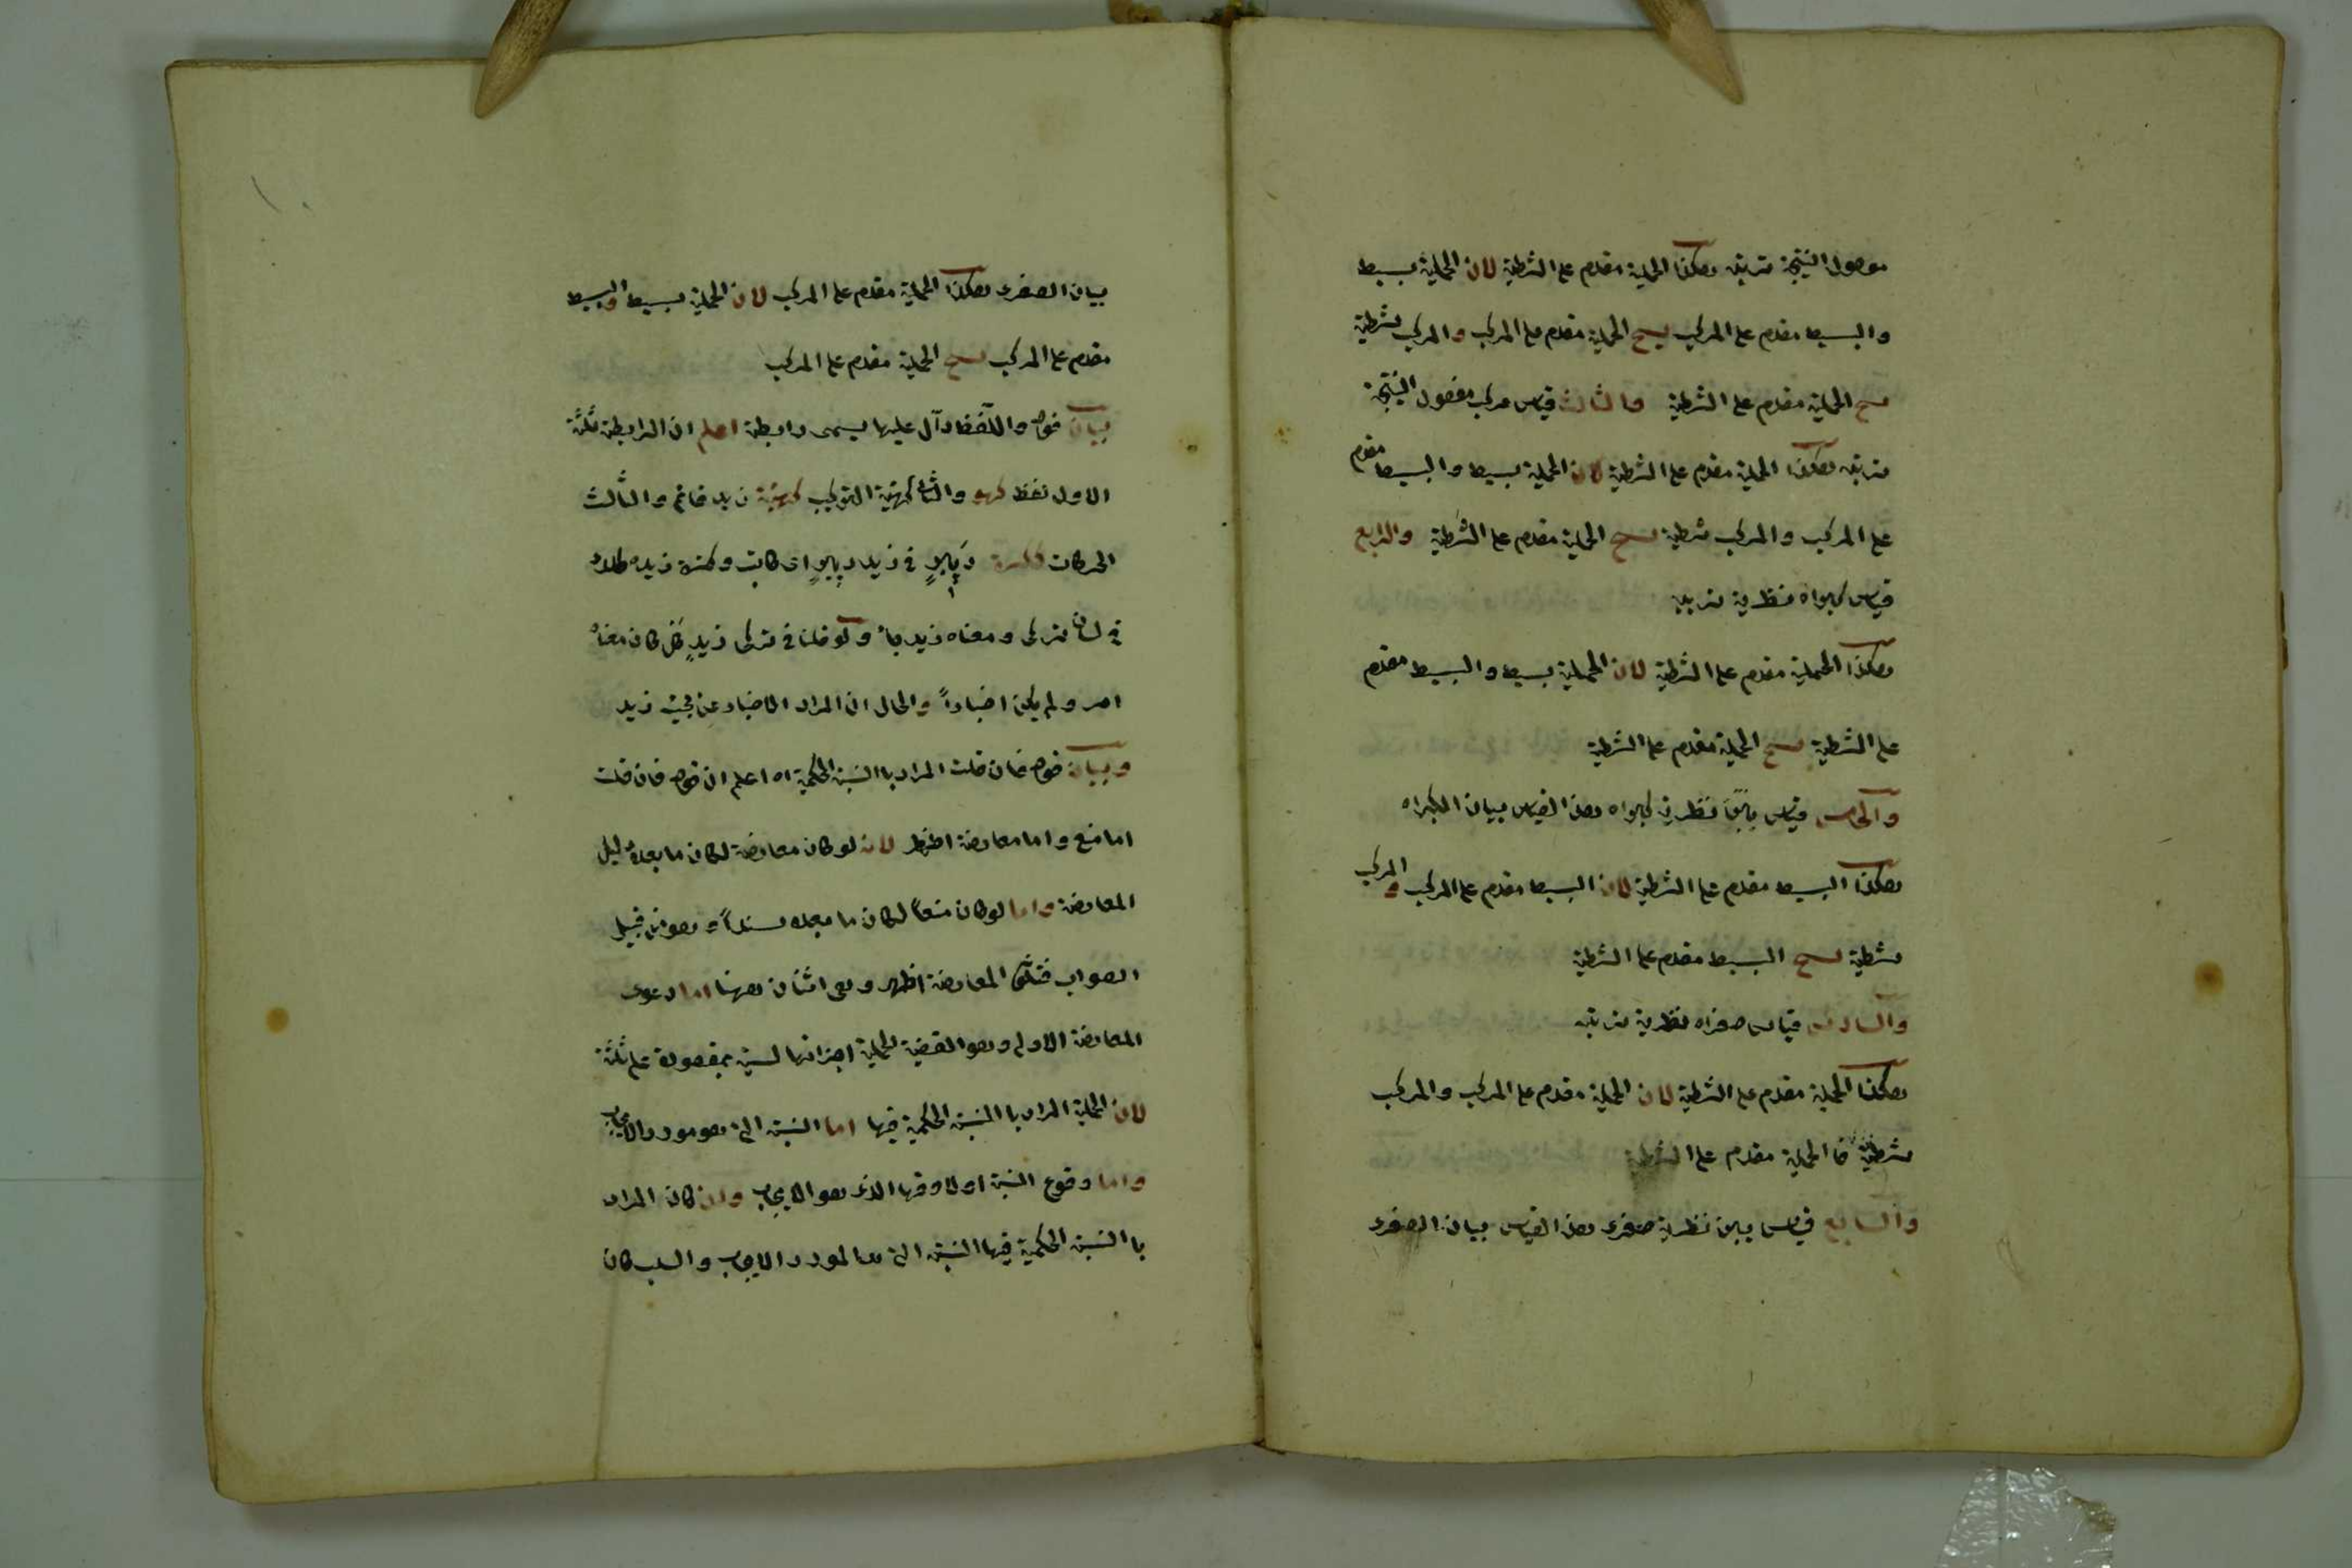 موصول النتيجة ترتيبه هكذا الحملية مقدم على الشرطية لان الحملية بسيط
والبسيط مقدم على المركب ينتج الحملية مقدم على المركب والمركب شرطية
ينتج الحملية مقدم على الشرطية والثالث قياس مركب مفصول النتيجة
ترتيبه هكذا الحملية مقدم على الشرطية لان الحملية بسيط والبسيط مقدم
على المركب والمركب شرطية ينتج الحملية مقدم على الشرطية والرابع
قياس كبراه نظرية ترتيبه
هكذا الحملية مقدم على الشرطية لان الحملية بسيط والبسيط مقدم
على الشرطية ينتج الحملية مقدم على الشرطية
والخامس قياس نظرية كبراه هذا القياس بيان الكبراه
هكذا البسيط مقدم على الشرطية لان البسيط مقدم على المركب والمركب
شرطية ينتج البسيط مقدم على الشرطية
والسادس قياس صغراه نظرية ترتيبه
هكذا الحملية مقدم على الشرطية لان الحملية مقدم على المركب والمركب
شرطية فا الحملية مقدم على الشرطية
والسابع قياس يبين نظرية صغرى هذا القياس بيان الصغرى
بيان الصغرى هكذا الحملية مقدم على المركب لان الحملية بسيط والبسيط
مقدم على المركب ينتج الحملية مقدم على المركب
بيان قوله واللفظ دآل عليها يسمى رابطة اعلم ان الرابطة ثلثة
الاول لفظ كهو والثانى كهيئة التركيب كهيئة زيد قائم والثالث
الحركات ككسرة في زيد دبير اى كاتب وكسرة زيد
في لسان تركى ومعناه زيد جاء ولو قلنا في تركى زيد كل كان معناه
امر ولم يكن اخباراً والحال ان المراد الاخبار عن مجيئ زيد
وبيان قوله فان قلت المراد با النسبة الحكمية اه اعلم ان قوله فان قلت
اما منع واما معارضة لان لو كان معارضة لكان ما بعده دليل
المعارضة واما لو كان منعاً لكان ما بعده سنداً وهو من قبيل
الصواب المعارضة اظهر وهى اثنان ههنا اما دعوى
المعارضة الاولى وهو القضية الحملية اجزائها ليست بمقصورة على ثلثة
لان الحملية المراد با النسبة الحكمية فيها اما النسبة التى هو مورد الايجاب
واما وقوع النسبة اولا وقوعها الذى هو الايجاب وان كان المراد
با النسبة الحكمية فيها النسبة التى هى المورد الايجاب والسلب كان